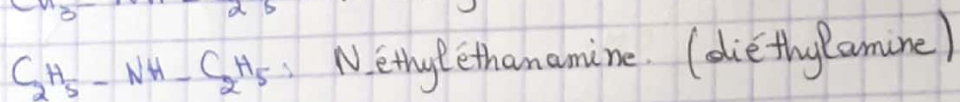 C₂H₅ - NH - C₂H₅ : N-éthyléthanamine. (diéthylamine)